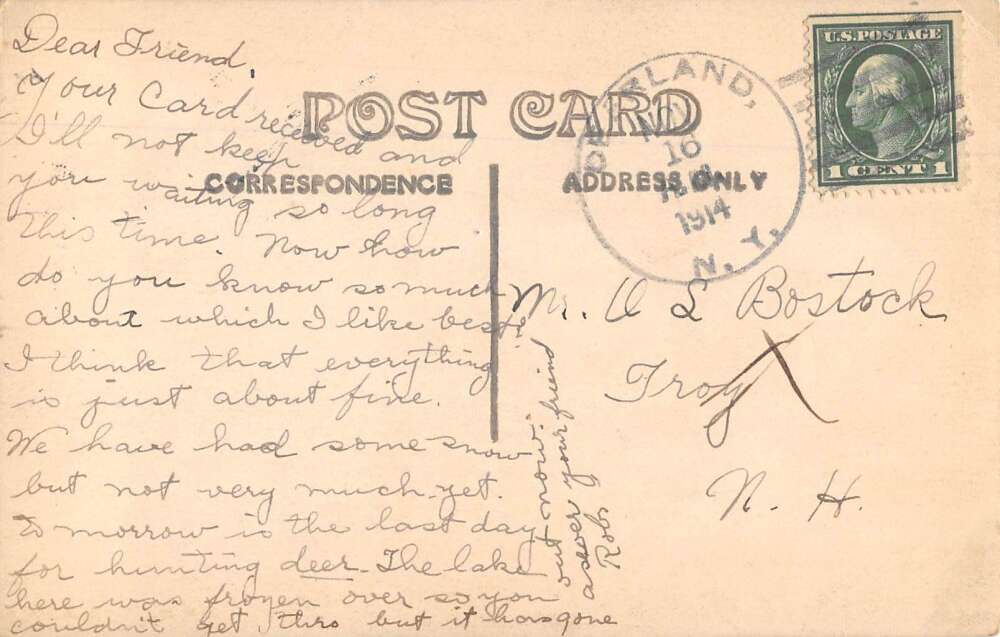 Dear Friend,
Your Card received and
I'll not keep
you waiting so long
this time. Now how
do you know so much
about which I like best
I think that everything
is just about fine.
We have had some snow
but not very much yet.
To morrow is the last day
for hunting deer. The lake
here was frozen over so you
couldn't get thro but it has gone
out now.
as ever your friend
Rob
POST CARD
CORRESPONDENCE
ADDRESS ONLY
LAND,
10
1914
N. Y.
U.S. POSTAGE
1 CENT 1
Mr. O L Bostock
Troy
N. H.